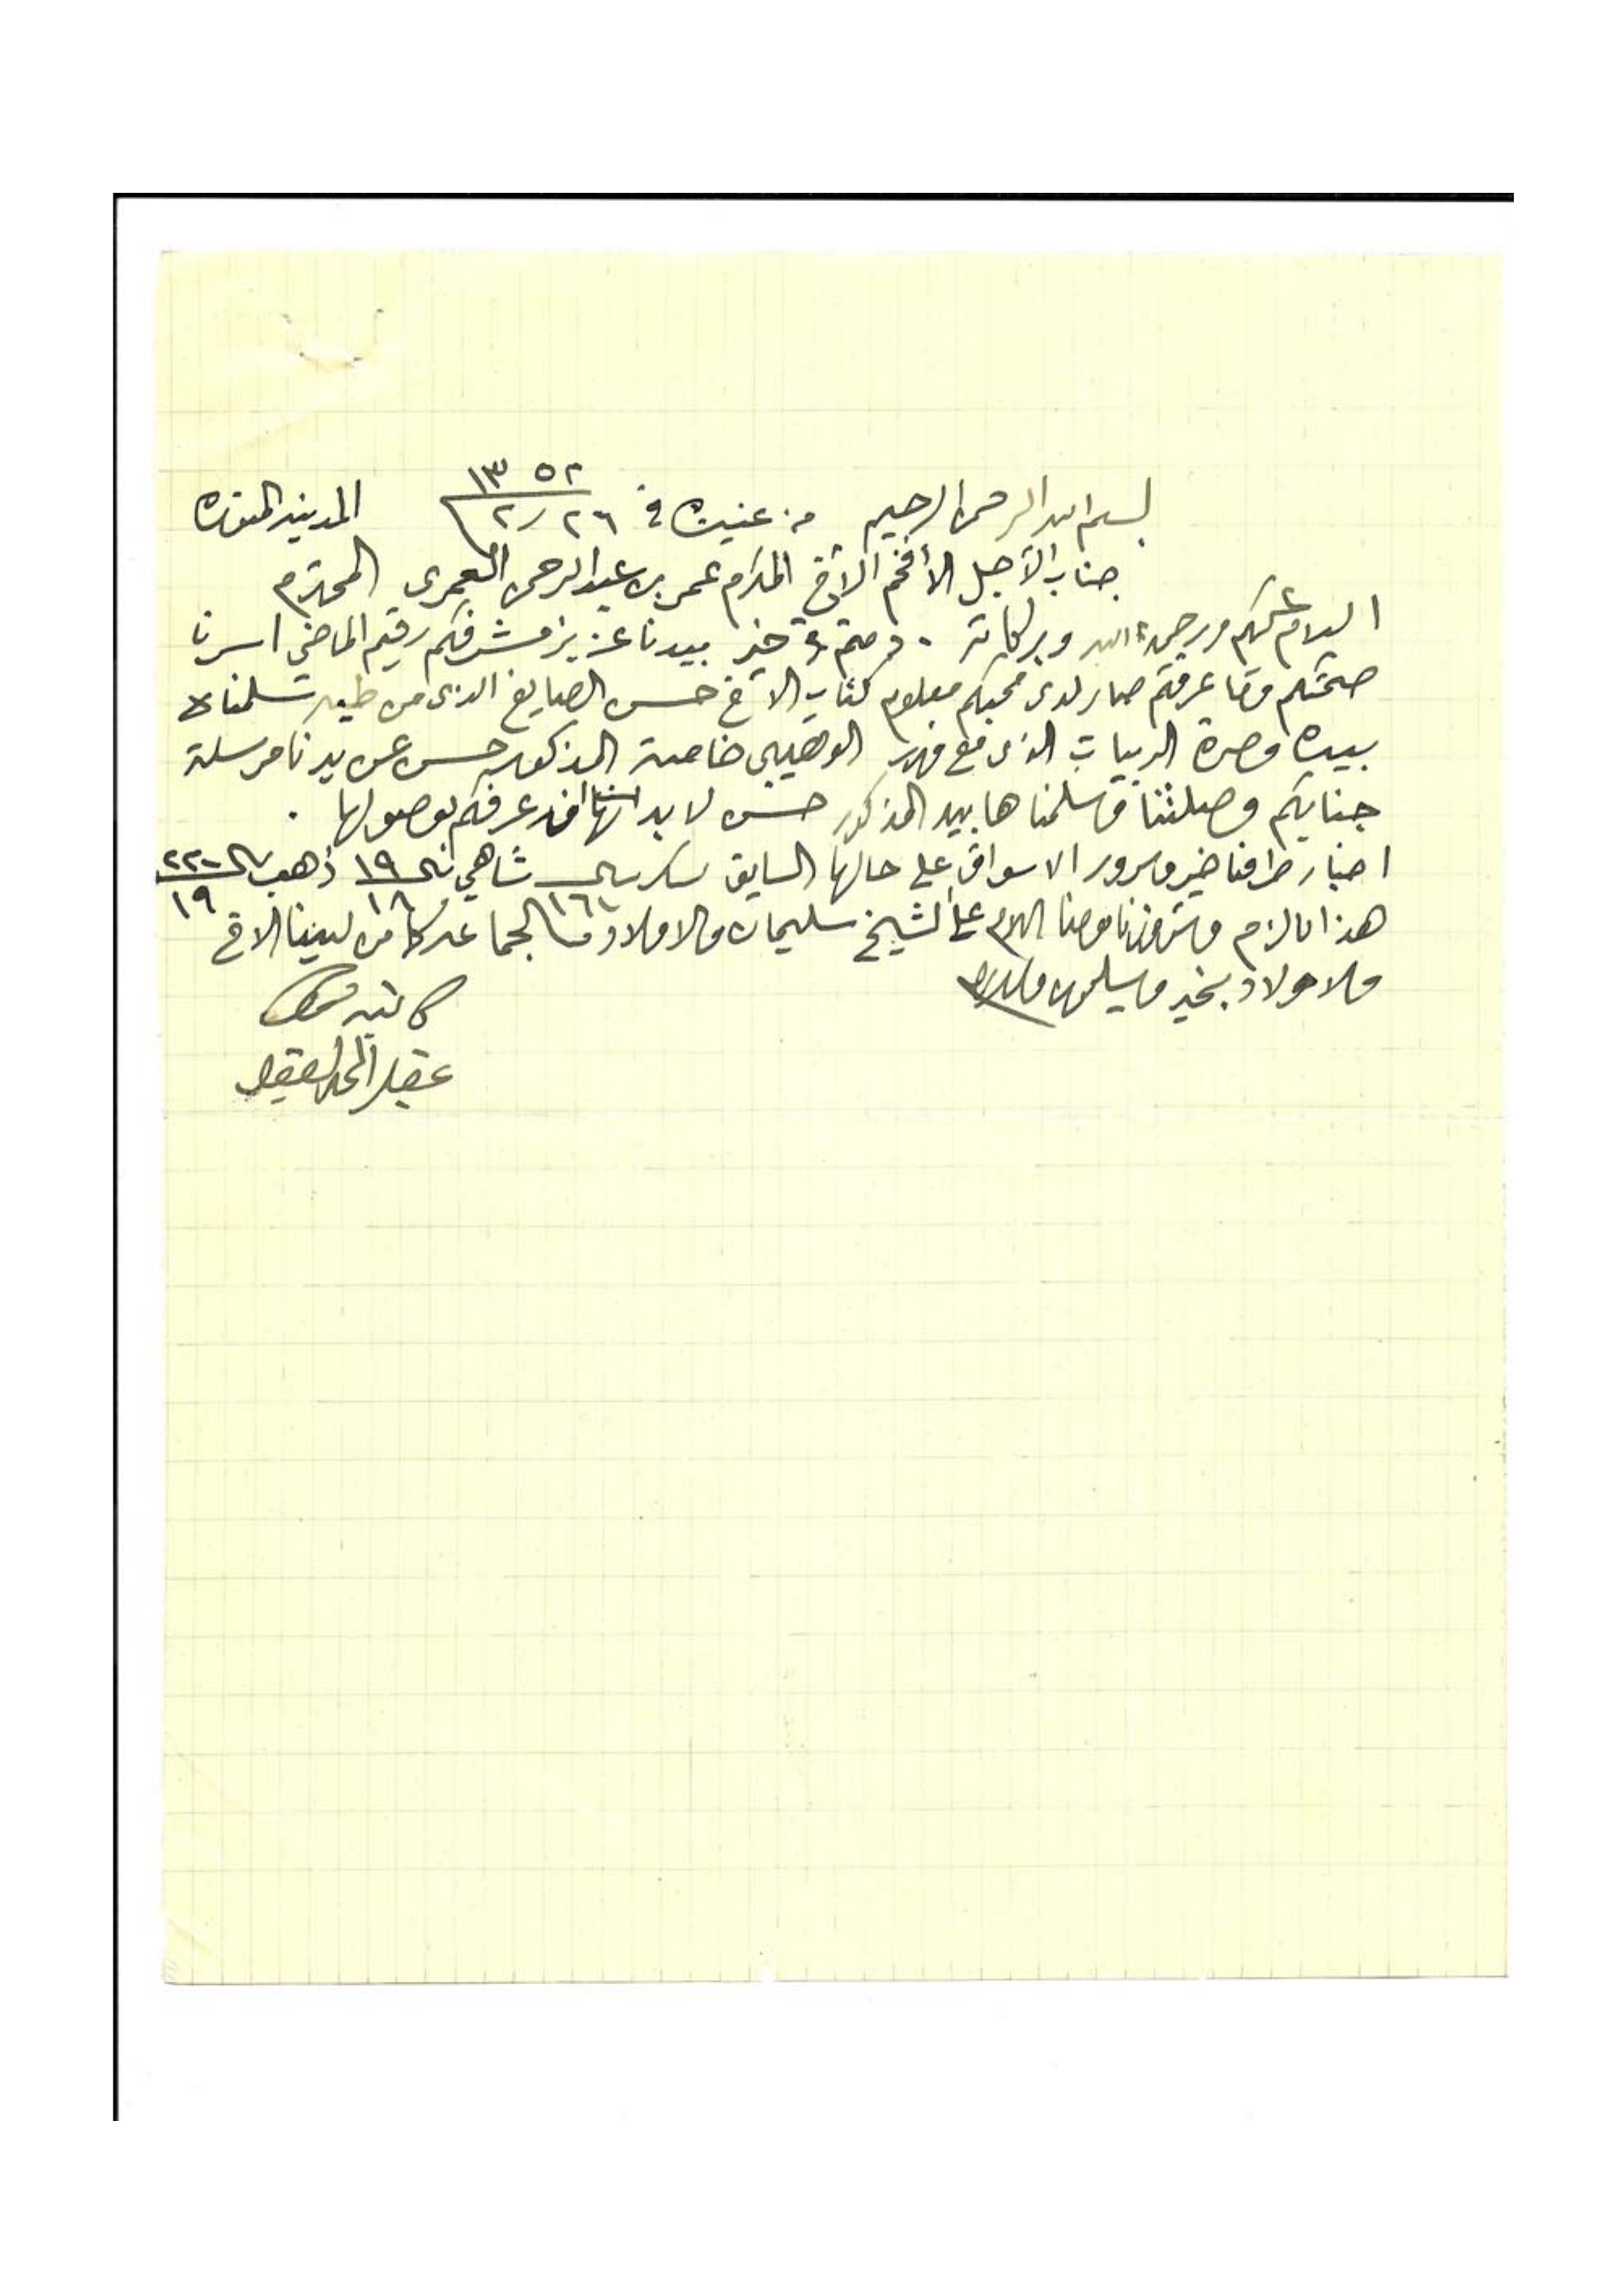 بسم الله الرحمن الرحيم من عنيزة في ٢٦/٢ ١٣٥٢ المدينه المنوره
جناب الأجل الأفخم الأخ المكرم عمر بن عبدالرحمن العمري المحترم
السلام عليكم ورحمة الله وبركاته . دمتم في خير بيدنا عزيز مشرفكم رقيم الماضي اسرنا
صحتكم وما عرفتم صار لدى محبكم معلوم كتاب الأخ حسن الصايغ الذي من طيه سلمناه
بيده وصرة الربيات الذي مع فهد الوهيبي خاصة المذكور حسن عن يدنا مرسلة
جنابكم وصلتنا وسلمناها بيد المذكور حسن لابد عرفكم بوصولها .
اخبار طرافنا خير وسرور الاسواق على حالها السابق سكر شاهي ١٩ ذهب ٢٢
١٦ ١٨ ١٩
هذا مالزم السلام على الشيخ سليمان والاولاد الجماعه كما من لدينا الاخ
والاولاد بخير ويسلمون
كاتبه